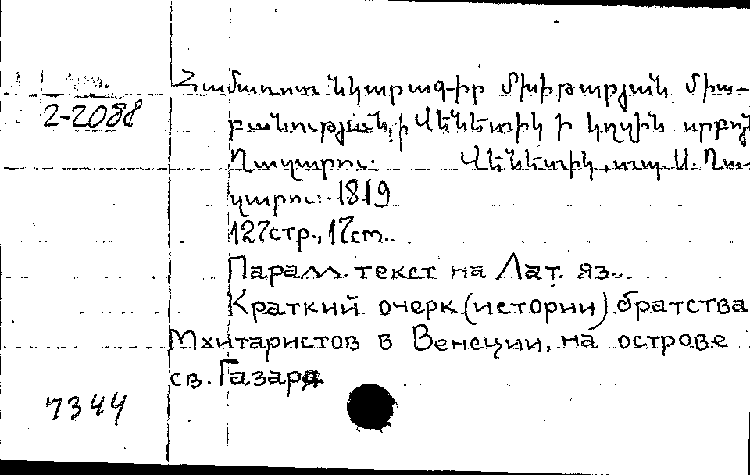 2-2088
Համառոտ նկարագիր Մխիթարյան միա-
բանության, ի Վենետիկ ի կղզին սրբոյն
Ղազարու. Վենետիկ, տպ. Ս. Ղա-
զարու. 1819
127стр., 17см.
Паралл. текст на Лат. яз.
Краткий очерк (истории) братства
Мхитаристов в Венеции, на острове
св. Газара
7344